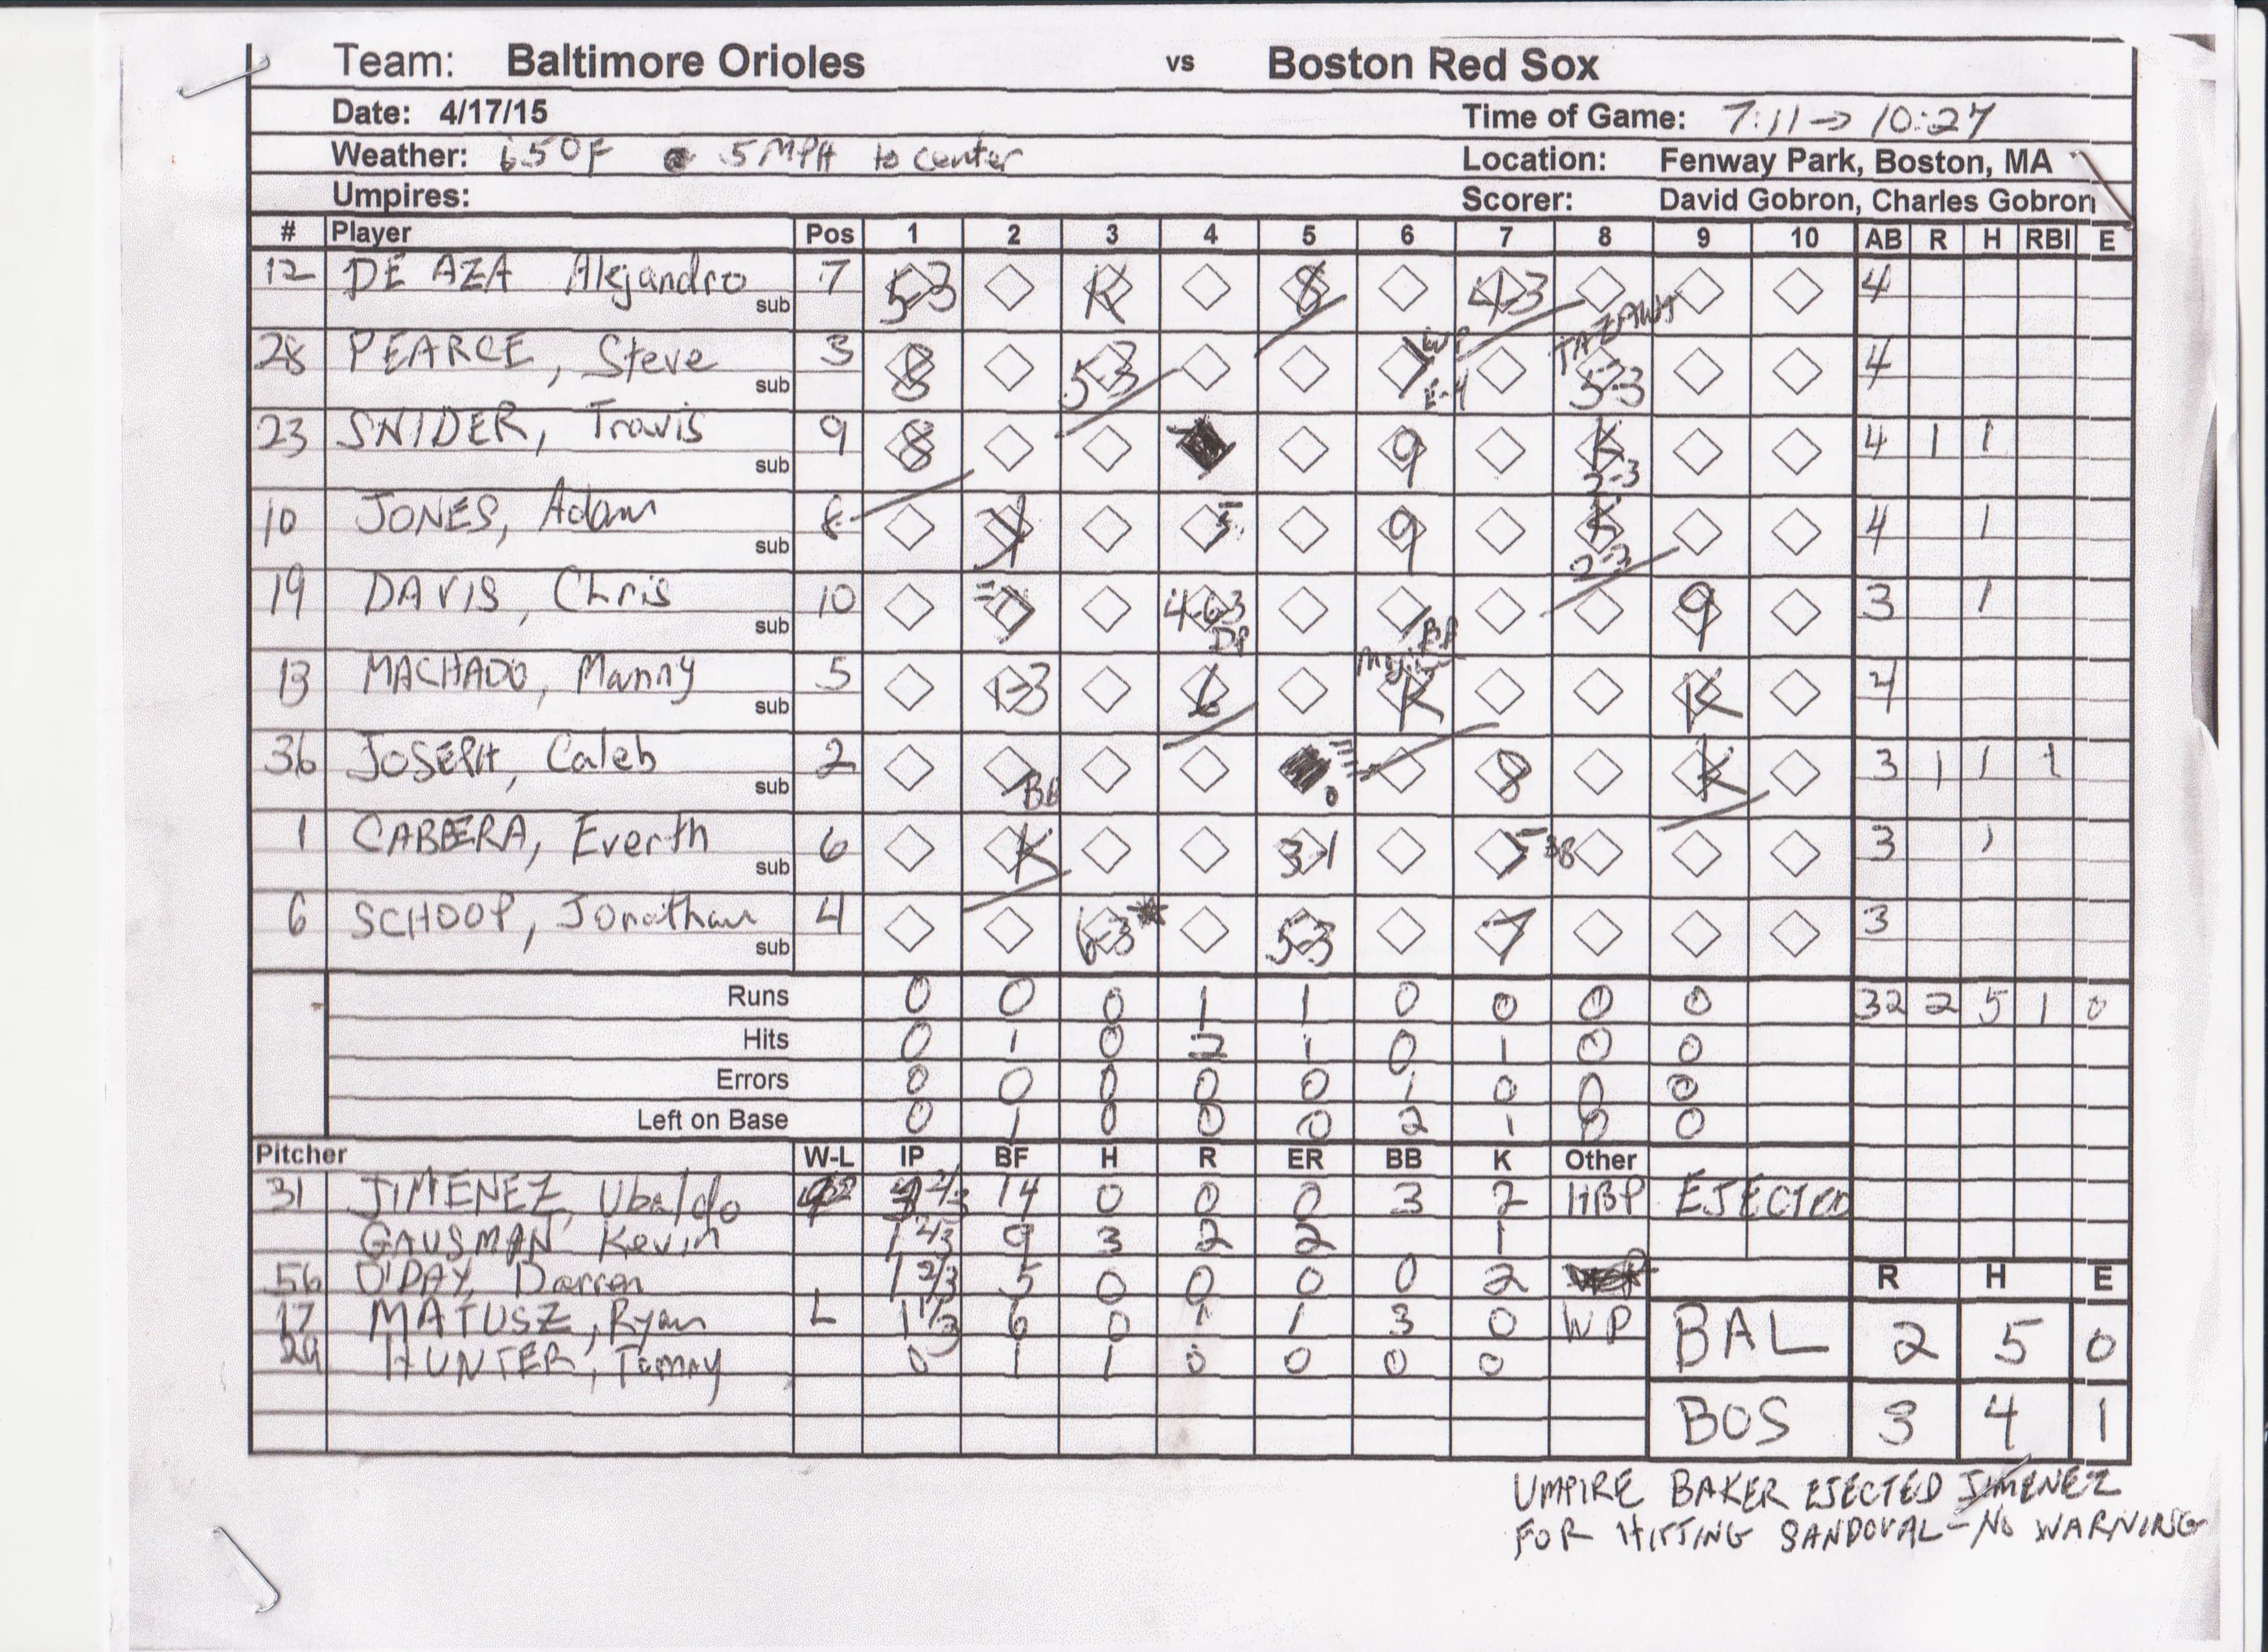 Team: Baltimore Orioles vs Boston Red Sox
Date: 4/17/15 Time of Game: 7:11 → 10:27
Weather: 65OF @ 5 MPH to center Location: Fenway Park, Boston, MA
Umpires: Scorer: David Gobron, Charles Gobron
# Player Pos 1 2 3 4 5 6 7 8 9 10 AB R H RBI E
12 DE AZA Alejandro sub 7 5-3 K 8 4-3 4
28 PEARCE, Steve sub 3 8 5-3 WP E-4 TAZAWA 5-3 4
23 SNIDER, Travis sub 9 8 9 K 2-3 4 1 1
10 JONES, Adam sub 8 9 K 2-3 4 1
19 DAVIS, Chris sub 10 4-6-3 DP BB 9 3 1
13 MACHADO, Manny sub 5 1-3 6 K K 4
36 JOSEPH, Caleb sub 2 BB 8 K 3 1 1 1
1 CABBERA, Everth sub 6 K 3-1 3B 3 1
6 SCHOOP, Jonathan sub 4 6-3* 5-3 7 3
Runs 0 0 0 1 1 0 0 0 0 32 2 5 1 0
Hits 0 1 0 2 1 0 1 0 0
Errors 0 0 0 0 0 1 0 0 0
Left on Base 0 1 0 0 0 2 1 0 0
Pitcher W-L IP BF H R ER BB K Other
31 JIMENEZ, Ubaldo 2/3 14 0 0 0 3 2 HBP EJECTED
GAUSMAN Kevin 1 2/3 9 3 2 2 1
56 O'DAY, Darren 1 2/3 5 0 0 0 0 2
17 MATUSZ, Ryan L 1 1/3 6 0 1 1 3 0 WP
29 HUNTER, Tommy 0 1 1 0 0 0 0
R H E
BAL 2 5 0
BOS 3 4 1
UMPIRE BAKER EJECTED JIMENEZ
FOR HITTING SANDOVAL - NO WARNING